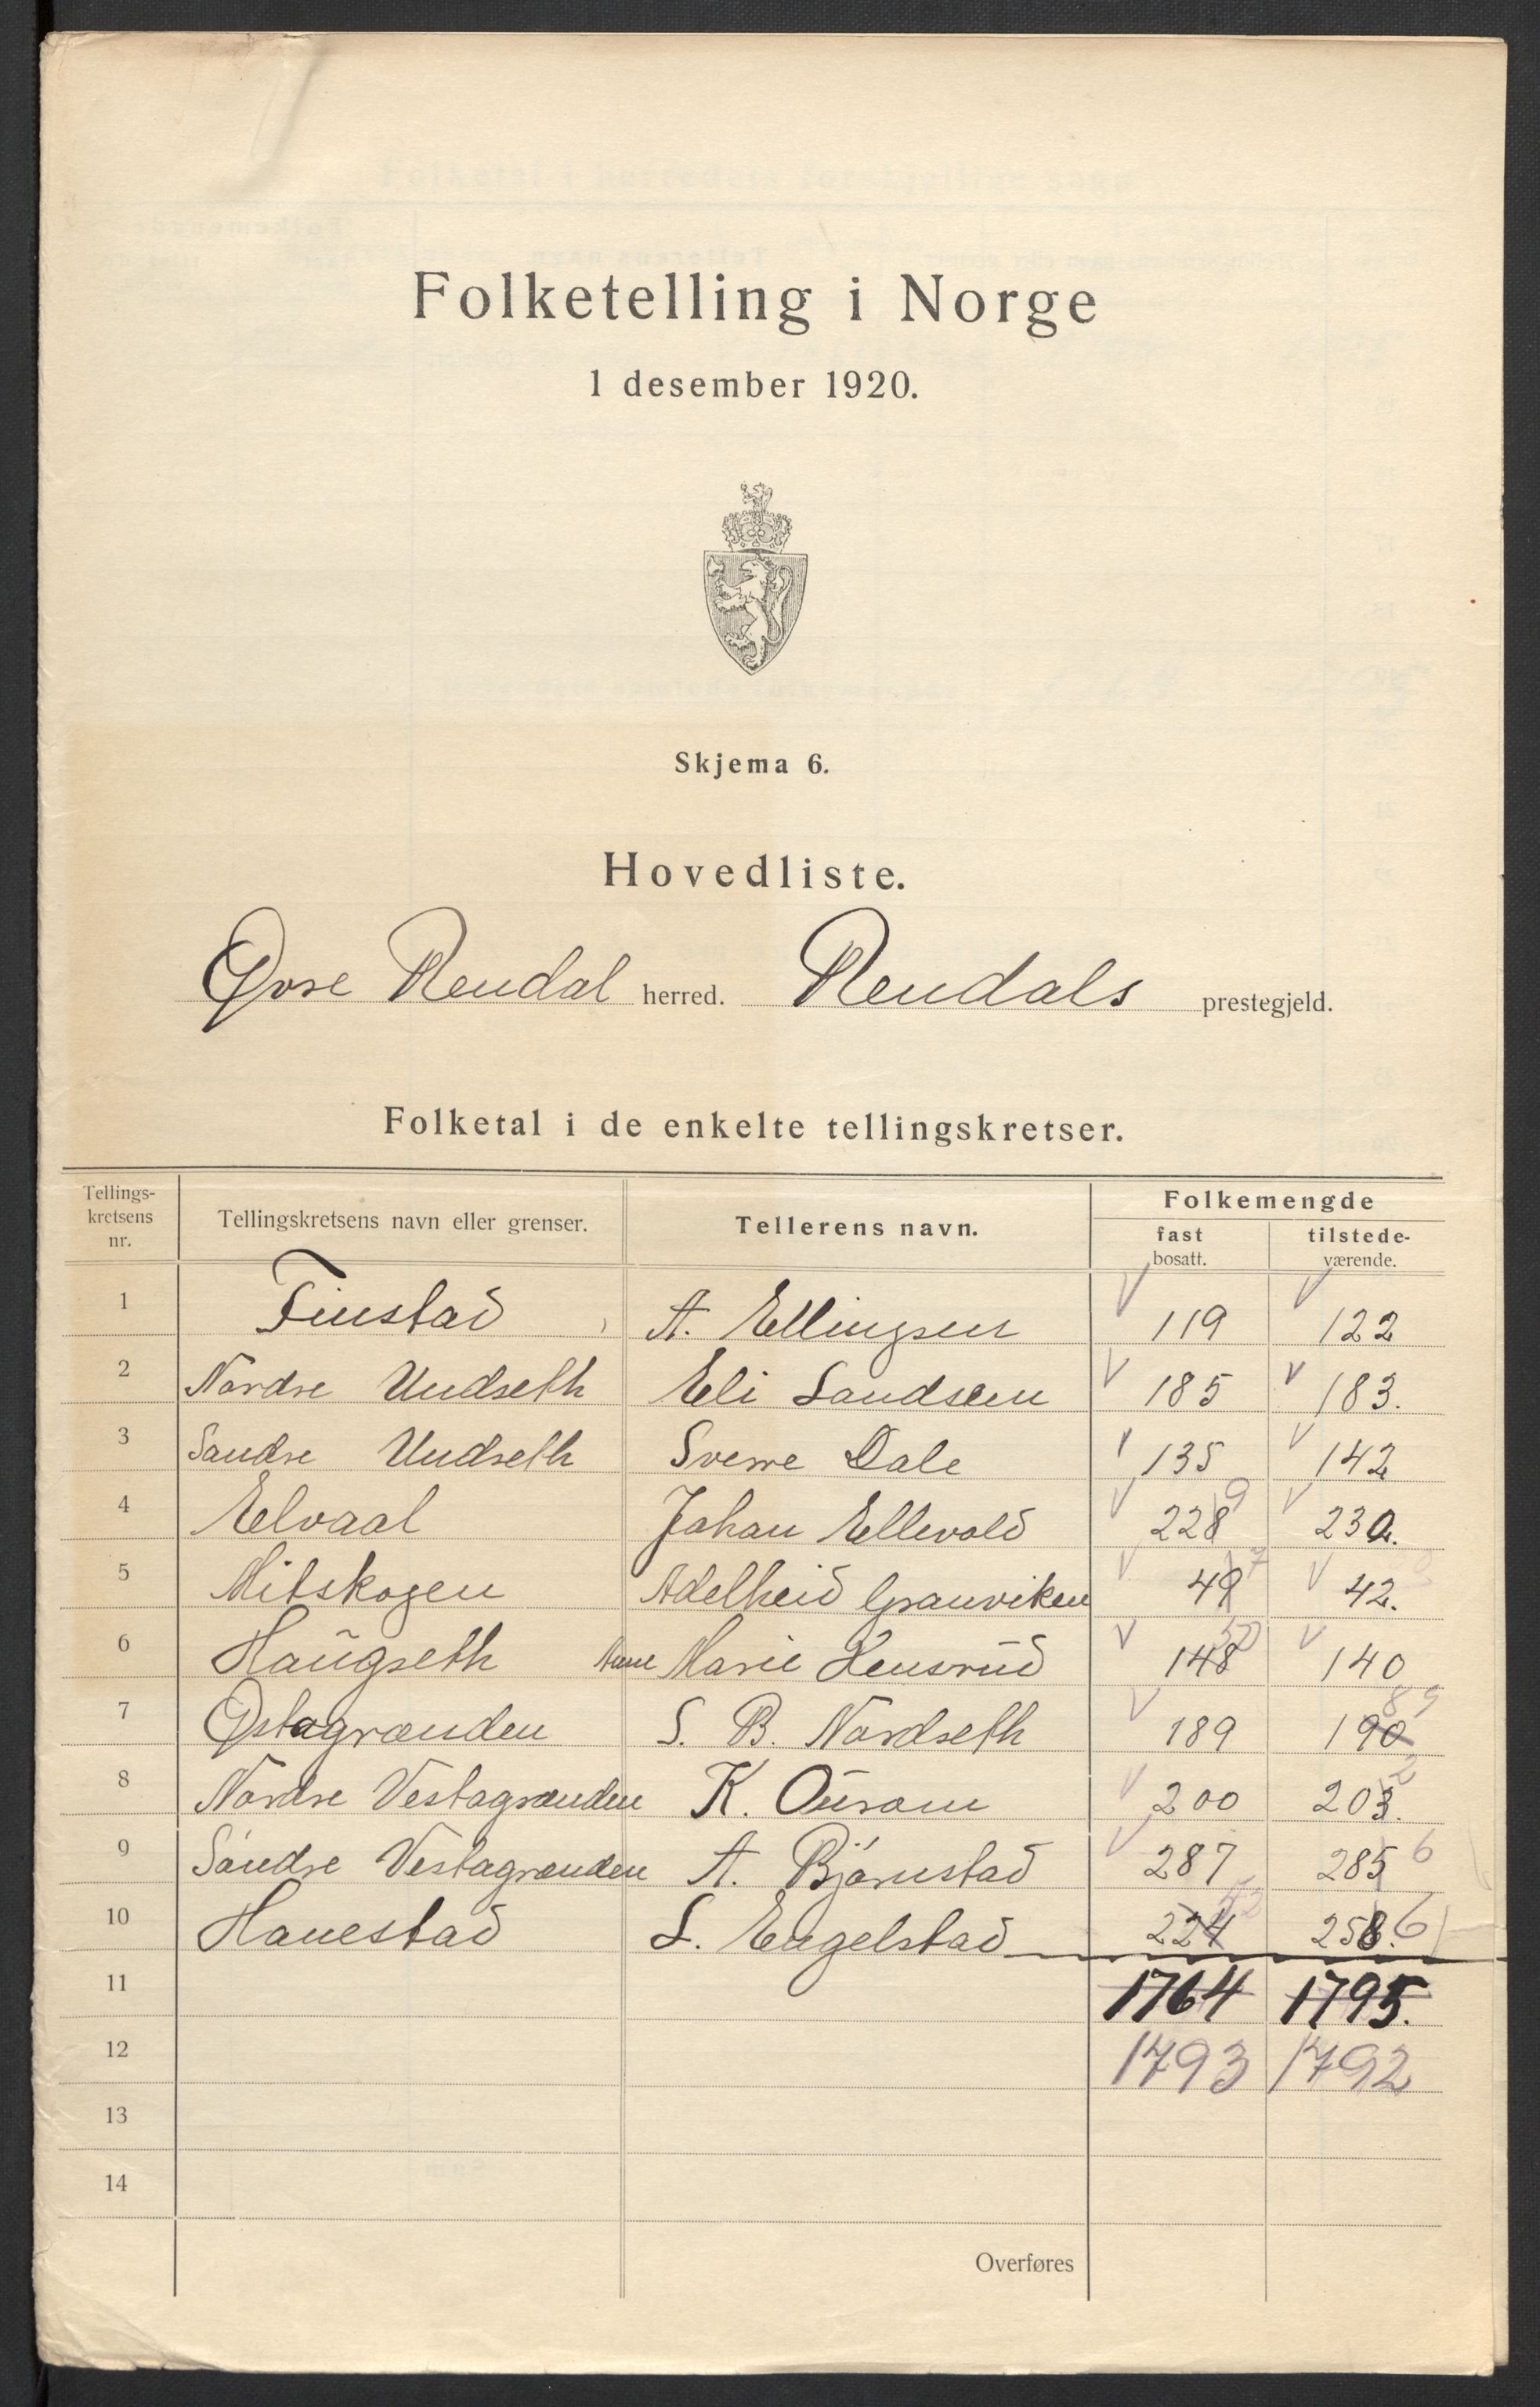 Folketelling i Norge
1 desember 1920.
Skjema 6.
Hovedliste.
Øvre Rendal herred. Rendals prestegjeld.
Folketal i de enkelte tellingskretser.
Tellings-kretsens nr. Tellingskretsens navn eller grenser. Tellerens navn. Folkemengde
fast bosatt. tilstede-værende.
1 Finstad A. Ellingsen 119 122
2 Nordre Undseth Eli Sandseen 185 183.
3 Søndre Undseth Sverre Dale 135 142
4 Eelvaal Johan Ellevold 228 9 230.
5 Mitskogen Adelheid Granviken 49 7 42.
6 Haugseth Anne Marie Hensrud 148 50 140
7 Østagrænden S. B. Nordseth 189 190 89
8 Nordre Vestagrænden K. Øuram 200 203. 2
9 Søndre Vestagrænden A. Bjørnstad 287 285 6
10 Hanestad L. Engelstad 224 52 258. 6
11 1764 1795.
12 1793 1792
13
14
Overføres